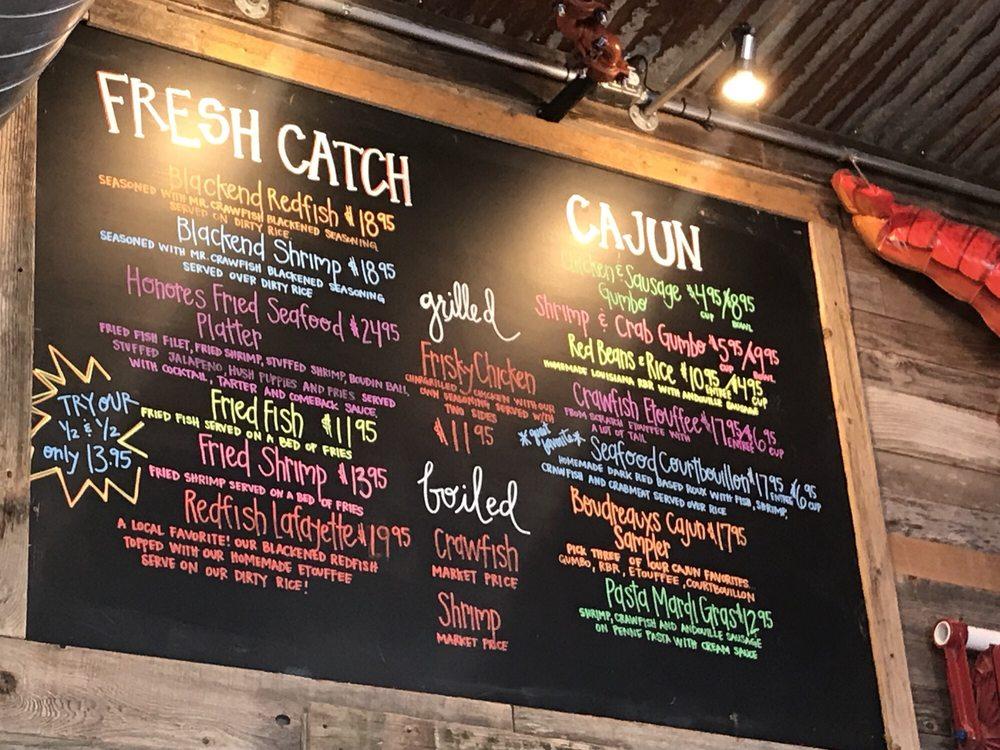 FRESH CATCH
Blackend Redfish $18.95
SEASONED WITH MR. CRAWFISH BLACKENED SEASONING
SERVED ON DIRTY RICE
Blackend Shrimp $18.95
SEASONED WITH MR. CRAWFISH BLACKENED SEASONING
SERVED OVER DIRTY RICE
Honores Fried Seafood $24.95
Platter
FRIED FISH FILET, FRIED SHRIMP, STUFFED SHRIMP, BOUDIN BALL,
STUFFED JALAPENO, HUSH PUPPIES AND FRIES SERVED
WITH COCKTAIL, TARTER AND COMEBACK SAUCE.
TRY OUR
1/2 & 1/2
only 13.95
Fried Fish $11.95
FRIED FISH SERVED ON A BED OF FRIES
Fried Shrimp $13.95
FRIED SHRIMP SERVED ON A BED OF FRIES
Redfish Lafayette $19.95
A LOCAL FAVORITE! OUR BLACKENED REDFISH
TOPPED WITH OUR HOMEMADE ETOUFFEE
SERVE ON OUR DIRTY RICE!
grilled
Frisky Chicken
CHARGRILLED CHICKEN WITH OUR
OWN SEASONING SERVED WITH
TWO SIDES
$11.95
boiled
Crawfish
MARKET PRICE
Shrimp
MARKET PRICE
CAJUN
Chicken & Sausage $4.95/$8.95
Gumbo CUP BOWL
Shrimp & Crab Gumbo $5.95/$9.95
CUP BOWL
Red Beans & Rice $10.95/$4.95
ENTREE CUP
HOMEMADE LOUISIANA RBR WITH ANDOUILLE SAUSAGE
Crawfish Etouffee $17.95/$6.95
ENTREE CUP
FROM SCRATCH ETOUFFEE WITH
A LOT OF TAIL
*great favorite*
Seafood Courtbouillon $17.95 $6.95
ENTREE CUP
HOMEMADE DARK RED BASED ROUX WITH FISH, SHRIMP,
CRAWFISH AND CRABMEAT SERVED OVER RICE
Boudreauxs Cajun $17.95
Sampler
PICK THREE OF OUR CAJUN FAVORITES...
GUMBO, RBR, ETOUFFEE, COURTBOUILLON
Pasta Mardi Gras $12.95
SHRIMP, CRAWFISH AND ANDOUILLE SAUSAGE
ON PENNE PASTA WITH CREAM SAUCE